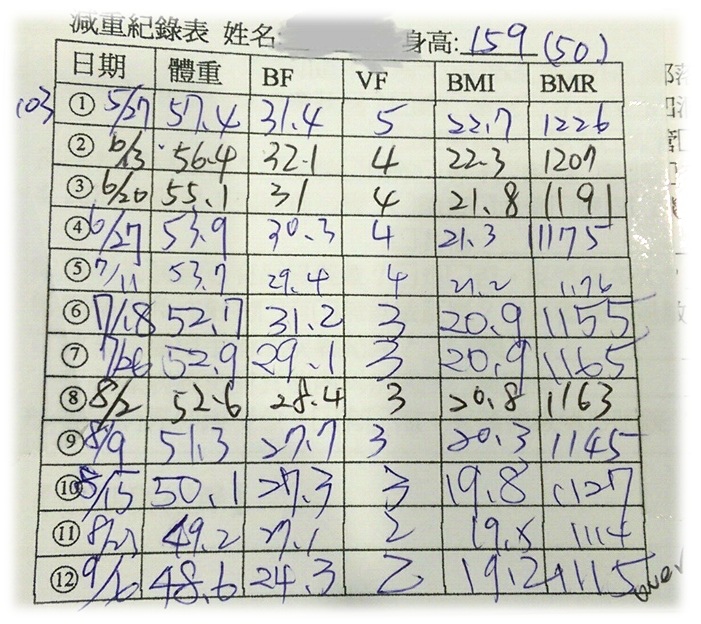 減重紀錄表 姓名: 身高: 159 (50)
日期 體重 BF VF BMI BMR
103 ① 5/27 57.4 31.4 5 22.7 1226
② 6/13 56.4 32.1 4 22.3 1207
③ 6/20 55.1 31 4 21.8 1191
④ 6/27 53.9 30.3 4 21.3 1175
⑤ 7/11 53.7 29.4 4 21.2 1176
⑥ 7/18 52.7 31.2 3 20.9 1155
⑦ 7/26 52.9 29.1 3 20.9 1165
⑧ 8/2 52.6 28.4 3 20.8 1163
⑨ 8/9 51.3 27.7 3 20.3 1145
⑩ 8/15 50.1 27.3 3 19.8 1127
⑪ 8/23 49.2 27.1 2 19.5 1114
⑫ 48.6 24.3 2 19.2 1115